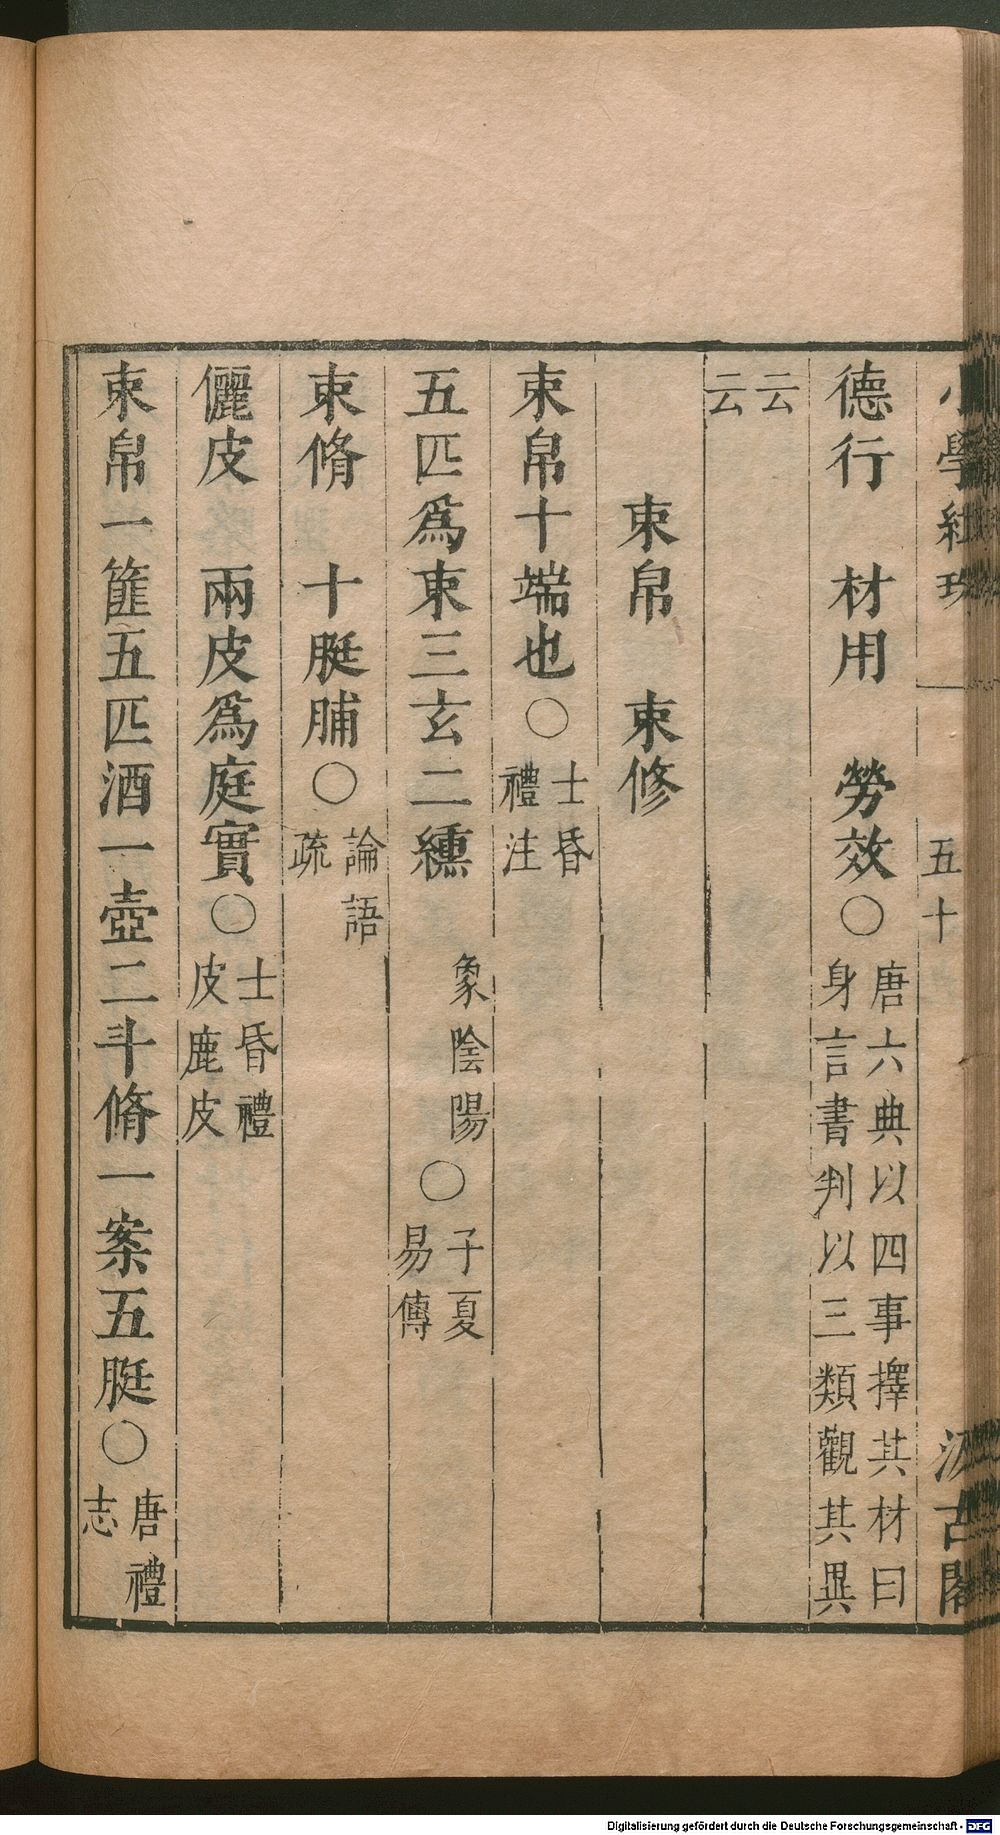 小學紺珠 五十 汲古閣
德行 材用 勞效○唐六典以四事擇其材曰身言書判以三類觀其異
云云
束帛 束修
束帛十端也○士昏禮注
五匹爲束三玄二纁象陰陽○子夏易傳
束脩 十脡脯○論語疏
儷皮 兩皮爲庭實○士昏禮皮鹿皮
束帛一篚五匹酒一壺二斗脩一案五脡○唐禮志
Digitalisierung gefördert durch die Deutsche Forschungsgemeinschaft - DFG